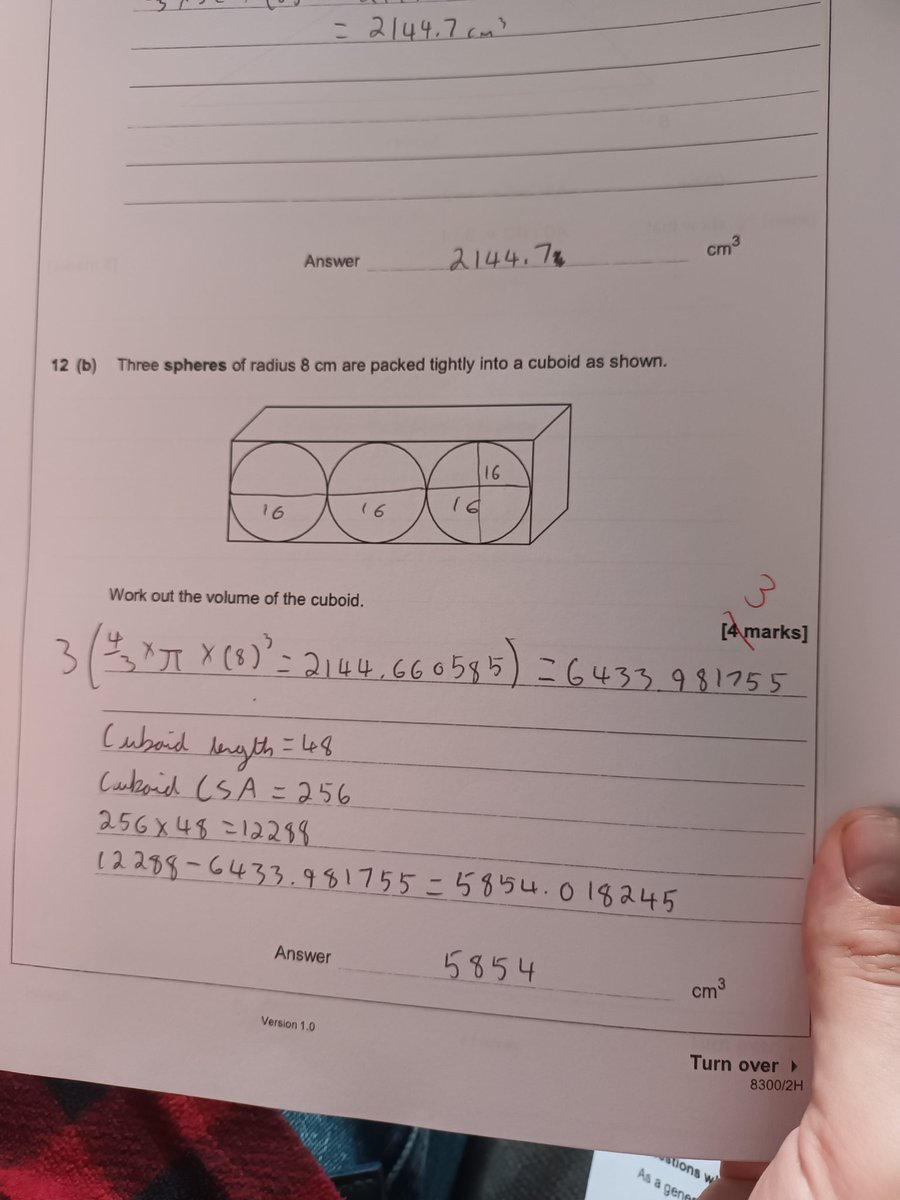 = 2144.7 cm³
Answer 2144.7 cm³
12 (b) Three spheres of radius 8 cm are packed tightly into a cuboid as shown.
16
16 16 16
Work out the volume of the cuboid.
3
[4 marks]
3(4/3 × π × (8)³ = 2144.660585) = 6433.981755
Cuboid length = 48
Cuboid CSA = 256
256 × 48 = 12288
12288 - 6433.981755 = 5854.018245
Answer 5854 cm³
Version 1.0
Turn over
8300/2H
As a gene